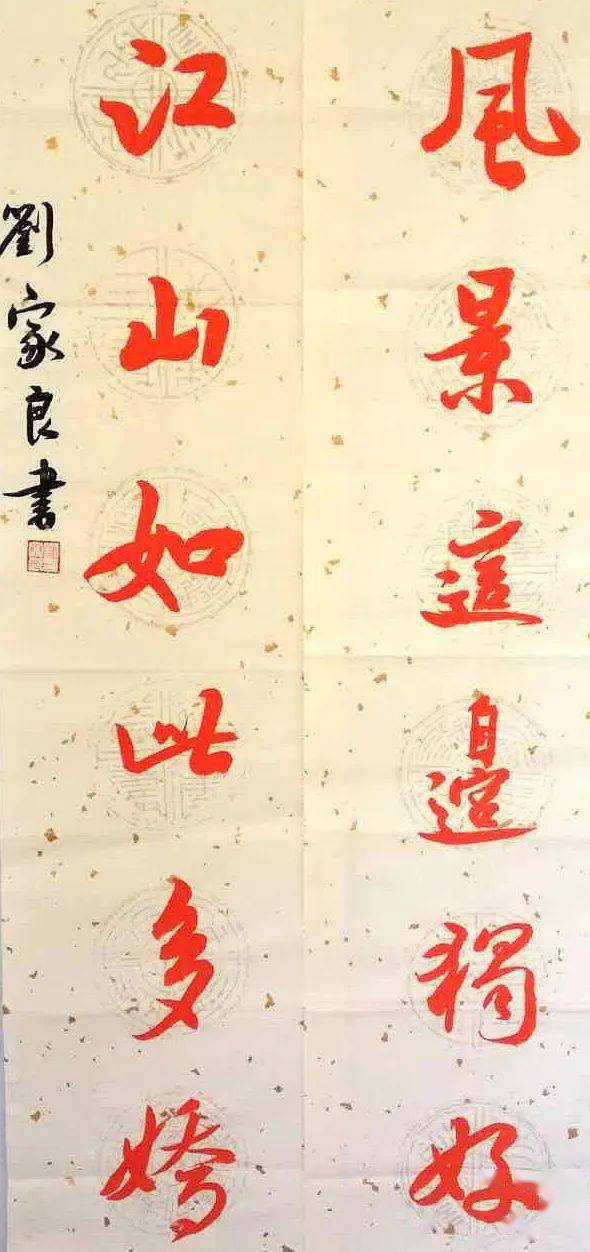 風景這邊獨好
江山如此多嬌
劉家良書